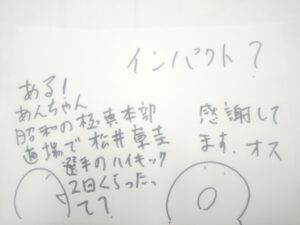 インパクト?
ある!
あんちゃん
昭和の極真本部
道場で松井章圭
選手のハイキック
2回くらったっ
て?
感謝して
ます、オス